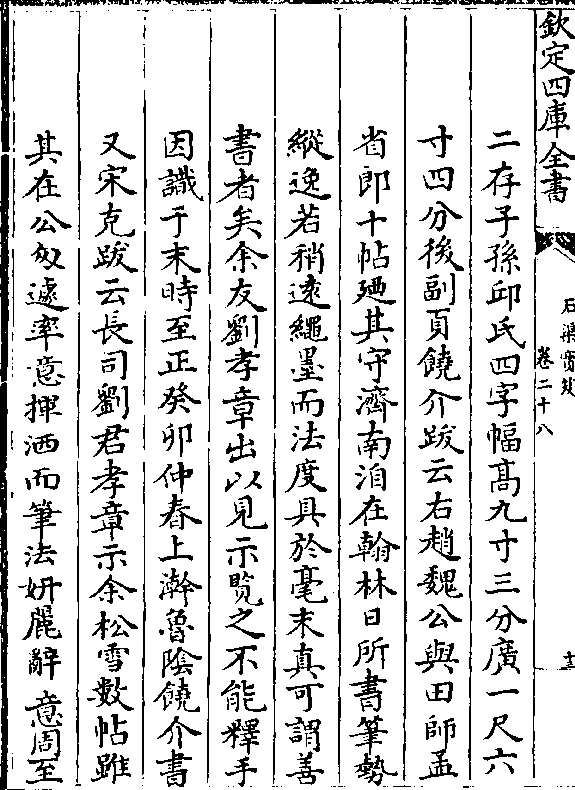 欽定四庫全書
石渠寶笈
卷二十八
二存子孫邱氏四字幅髙九寸三分廣一尺六
寸四分後副頁饒介跋云右趙魏公與田師孟
省郎十帖廼其守濟南洎在翰林日所書筆勢
縱逸若稍逺繩墨而法度具於毫末真可謂善
書者矣余友劉孝章出以見示覽之不能釋手
因識于末時至正癸卯仲春上澣魯陰饒介書
又宋克跋云長司劉君孝章示余松雪數帖雖
其在公匆遽率意揮洒而筆法妍麗辭意周至